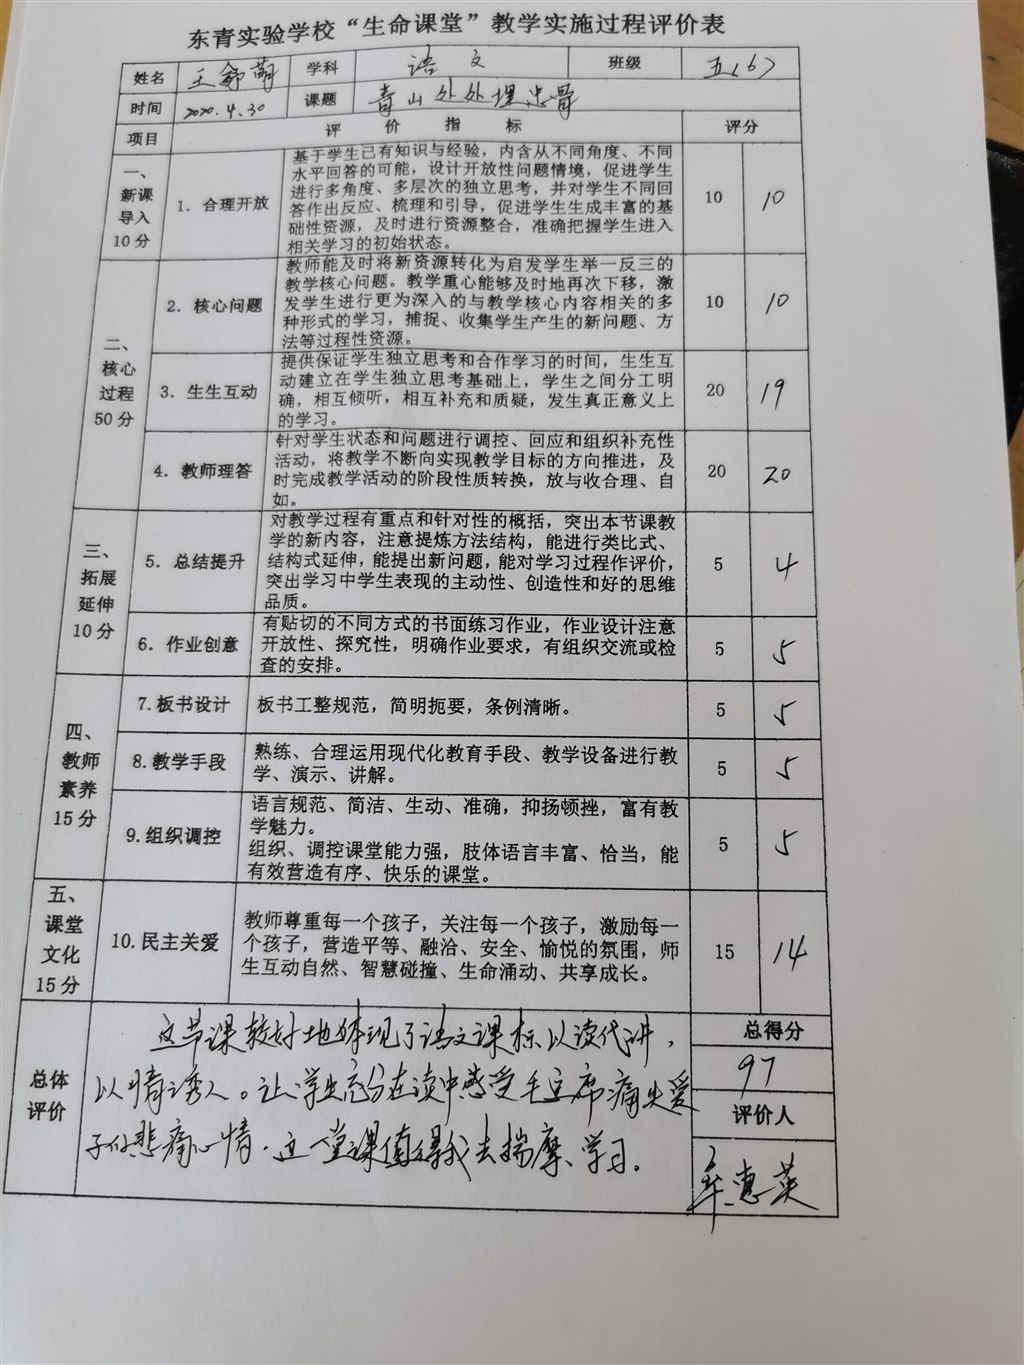 东青实验学校“生命课堂”教学实施过程评价表
姓名 王 萌 学科 语文 班级 五(6)
时间 2020.4.30 课题 青山处处埋忠骨
项目 评价指标 评分
一、
新课
导入
10分
1. 合理开放
基于学生已有知识与经验，内含从不同角度、不同
水平回答的可能，设计开放性问题情境，促进学生
进行多角度、多层次的独立思考，并对学生不同回
答作出反应、梳理和引导，促进学生生成丰富的基
础性资源，及时进行资源整合，准确把握学生进入
相关学习的初始状态。
10 10
二、
核心
过程
50分
2. 核心问题
教师能及时将新资源转化为启发学生举一反三的
教学核心问题。教学重心能够及时地再次下移，激
发学生进行更为深入的与教学核心内容相关的多
种形式的学习，捕捉、收集学生产生的新问题、方
法等过程性资源。
10 10
3. 生生互动
提供保证学生独立思考和合作学习的时间，生生互
动建立在学生独立思考基础上，学生之间分工明
确，相互倾听，相互补充和质疑，发生真正意义上
的学习。
20 19
4. 教师理答
针对学生状态和问题进行调控、回应和组织补充性
活动，将教学不断向实现教学目标的方向推进，及
时完成教学活动的阶段性质转换，放与收合理、自
如。
20 20
三、
拓展
延伸
10分
5. 总结提升
对教学过程有重点和针对性的概括，突出本节课教
学的新内容，注意提炼方法结构，能进行类比式、
结构式延伸，能提出新问题，能对学习过程作评价，
突出学习中学生表现的主动性、创造性和好的思维
品质。
5 4
6. 作业创意
有贴切的不同方式的书面练习作业，作业设计注意
开放性、探究性，明确作业要求，有组织交流或检
查的安排。
5 5
四、
教师
素养
15分
7.板书设计
板书工整规范，简明扼要，条例清晰。
5 5
8.教学手段
熟练、合理运用现代化教育手段、教学设备进行教
学、演示、讲解。
5 5
9.组织调控
语言规范、简洁、生动、准确，抑扬顿挫，富有教
学魅力。
组织、调控课堂能力强，肢体语言丰富、恰当，能
有效营造有序、快乐的课堂。
5 5
五、
课堂
文化
15分
10.民主关爱
教师尊重每一个孩子，关注每一个孩子，激励每一
个孩子，营造平等、融洽、安全、愉悦的氛围，师
生互动自然、智慧碰撞、生命涌动、共享成长。
15 14
总体
评价
这节课较好地体现了语文课标以读代讲，
以情诱人。让学生充分在读中感受毛主席痛失爱
子的悲痛心情。这一堂课值得我去揣摩、学习。
总得分
97
评价人
牟惠英